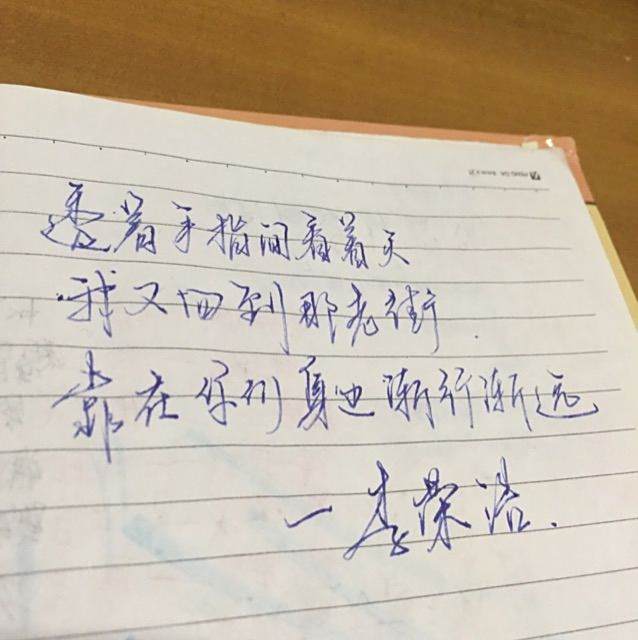 透着手指间看着天
我又回到那老街
靠在你们身边渐行渐远
一李荣浩.